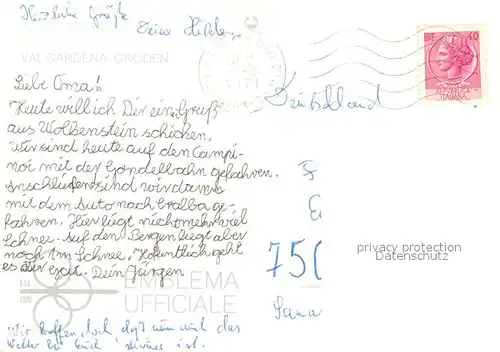 Herzliche Grüße
Deine Hilde
VALGARDENA GRÖDEN
40
REPUBBLICA
ITALIANA
1971
Deutschland
Liebe Oma!
Heute will ich Dir einen Gruß
aus Wolbenstein schicken.
Wir sind heute auf den Campi-
noi mit der Gondelbahn gefahren.
Anschließend sind wir dann
mit dem Auto nach Gralba ge-
fahren. Hier liegt nicht mehr viel
Schnee. Auf den Bergen liegt aber
noch 1m Schnee. Hoffentlich geht
es Dir gut. Dein Jürgen
750
privacy protection
Datenschutz
F.I.S.
1970
EMBLEMA
UFFICIALE
Wir hoffen doch daß nun auch das
Wetter bei Euch schöner ist.